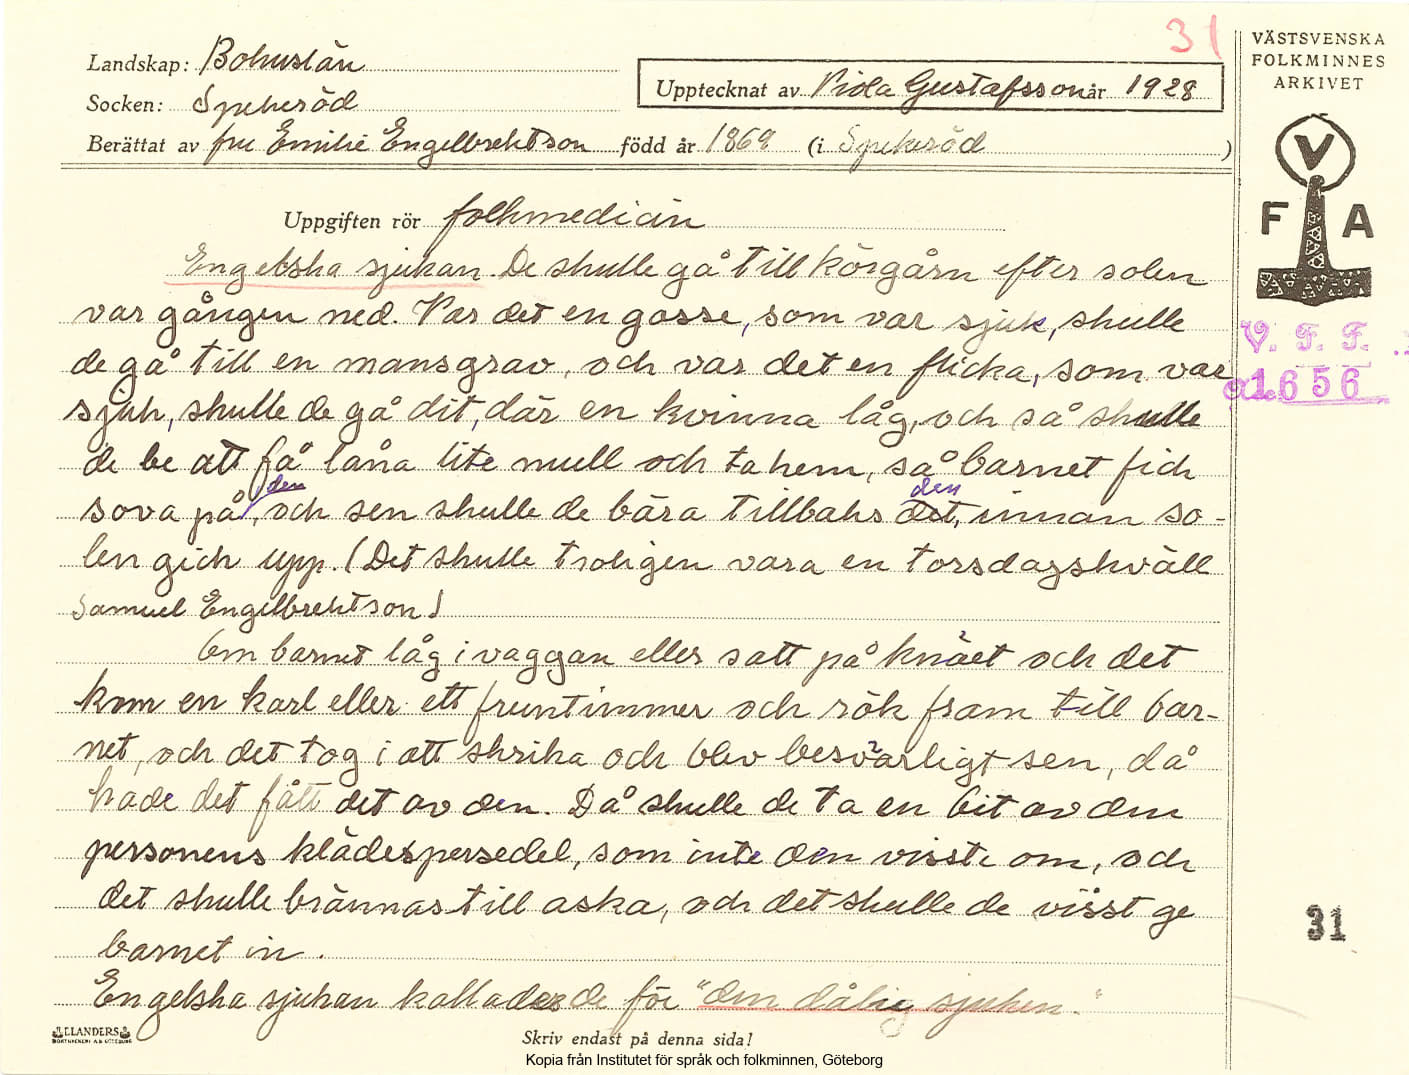 31
Landskap: Bohuslän
Socken: Spekeröd
Upptecknat av Viola Gustafsson år 1928
Berättat av fru Emilie Engelbrektson född år 1869 (i Spekeröd )
VÄSTSVENSKA
FOLKMINNES
ARKIVET
V
F A
V. F. F.
1656
Uppgiften rör folkmedicin
Engelska sjukan. De skulle gå till körgårn efter solen
var gången ned. Var det en gosse, som var sjuk, skulle
de gå till en mansgrav, och var det en flicka, som var
sjuk, skulle de gå dit, där en kvinna låg, och så skulle
de be att få låna lite mull och ta hem, så barnet fick
sova på den, och sen skulle de bära tillbaks det, den innan so-
len gick upp. (Det skulle troligen vara en torsdagskväll
Samuel Engelbrektson)
Om barnet låg i vaggan eller satt på knäet och det
kom en karl eller ett fruntimmer och rök fram till bar-
net, och det tog i att skrika och blev besvärligt sen, då
hade det fått det av den. Då skulle de ta en bit av den
personens klädespersedel, som inte den visste om, och
det skulle brännas till aska, och det skulle de visst ge
barnet in.
Engelska sjukan kallades de för "den dålig sjuken."
31
ELLANDERS
BOKTRYCKERI A.B. GÖTEBORG
Skriv endast på denna sida!
Kopia från Institutet för språk och folkminnen, Göteborg